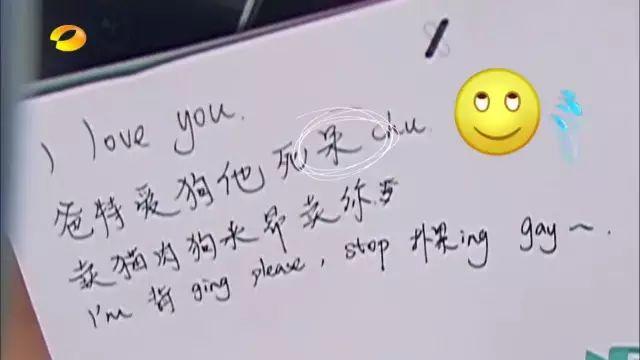 I love you.
爸特爱狗他死呆chu
卖猫肉狗米昂卖你
I'm 背ging please, stop 扑采ing gay~.